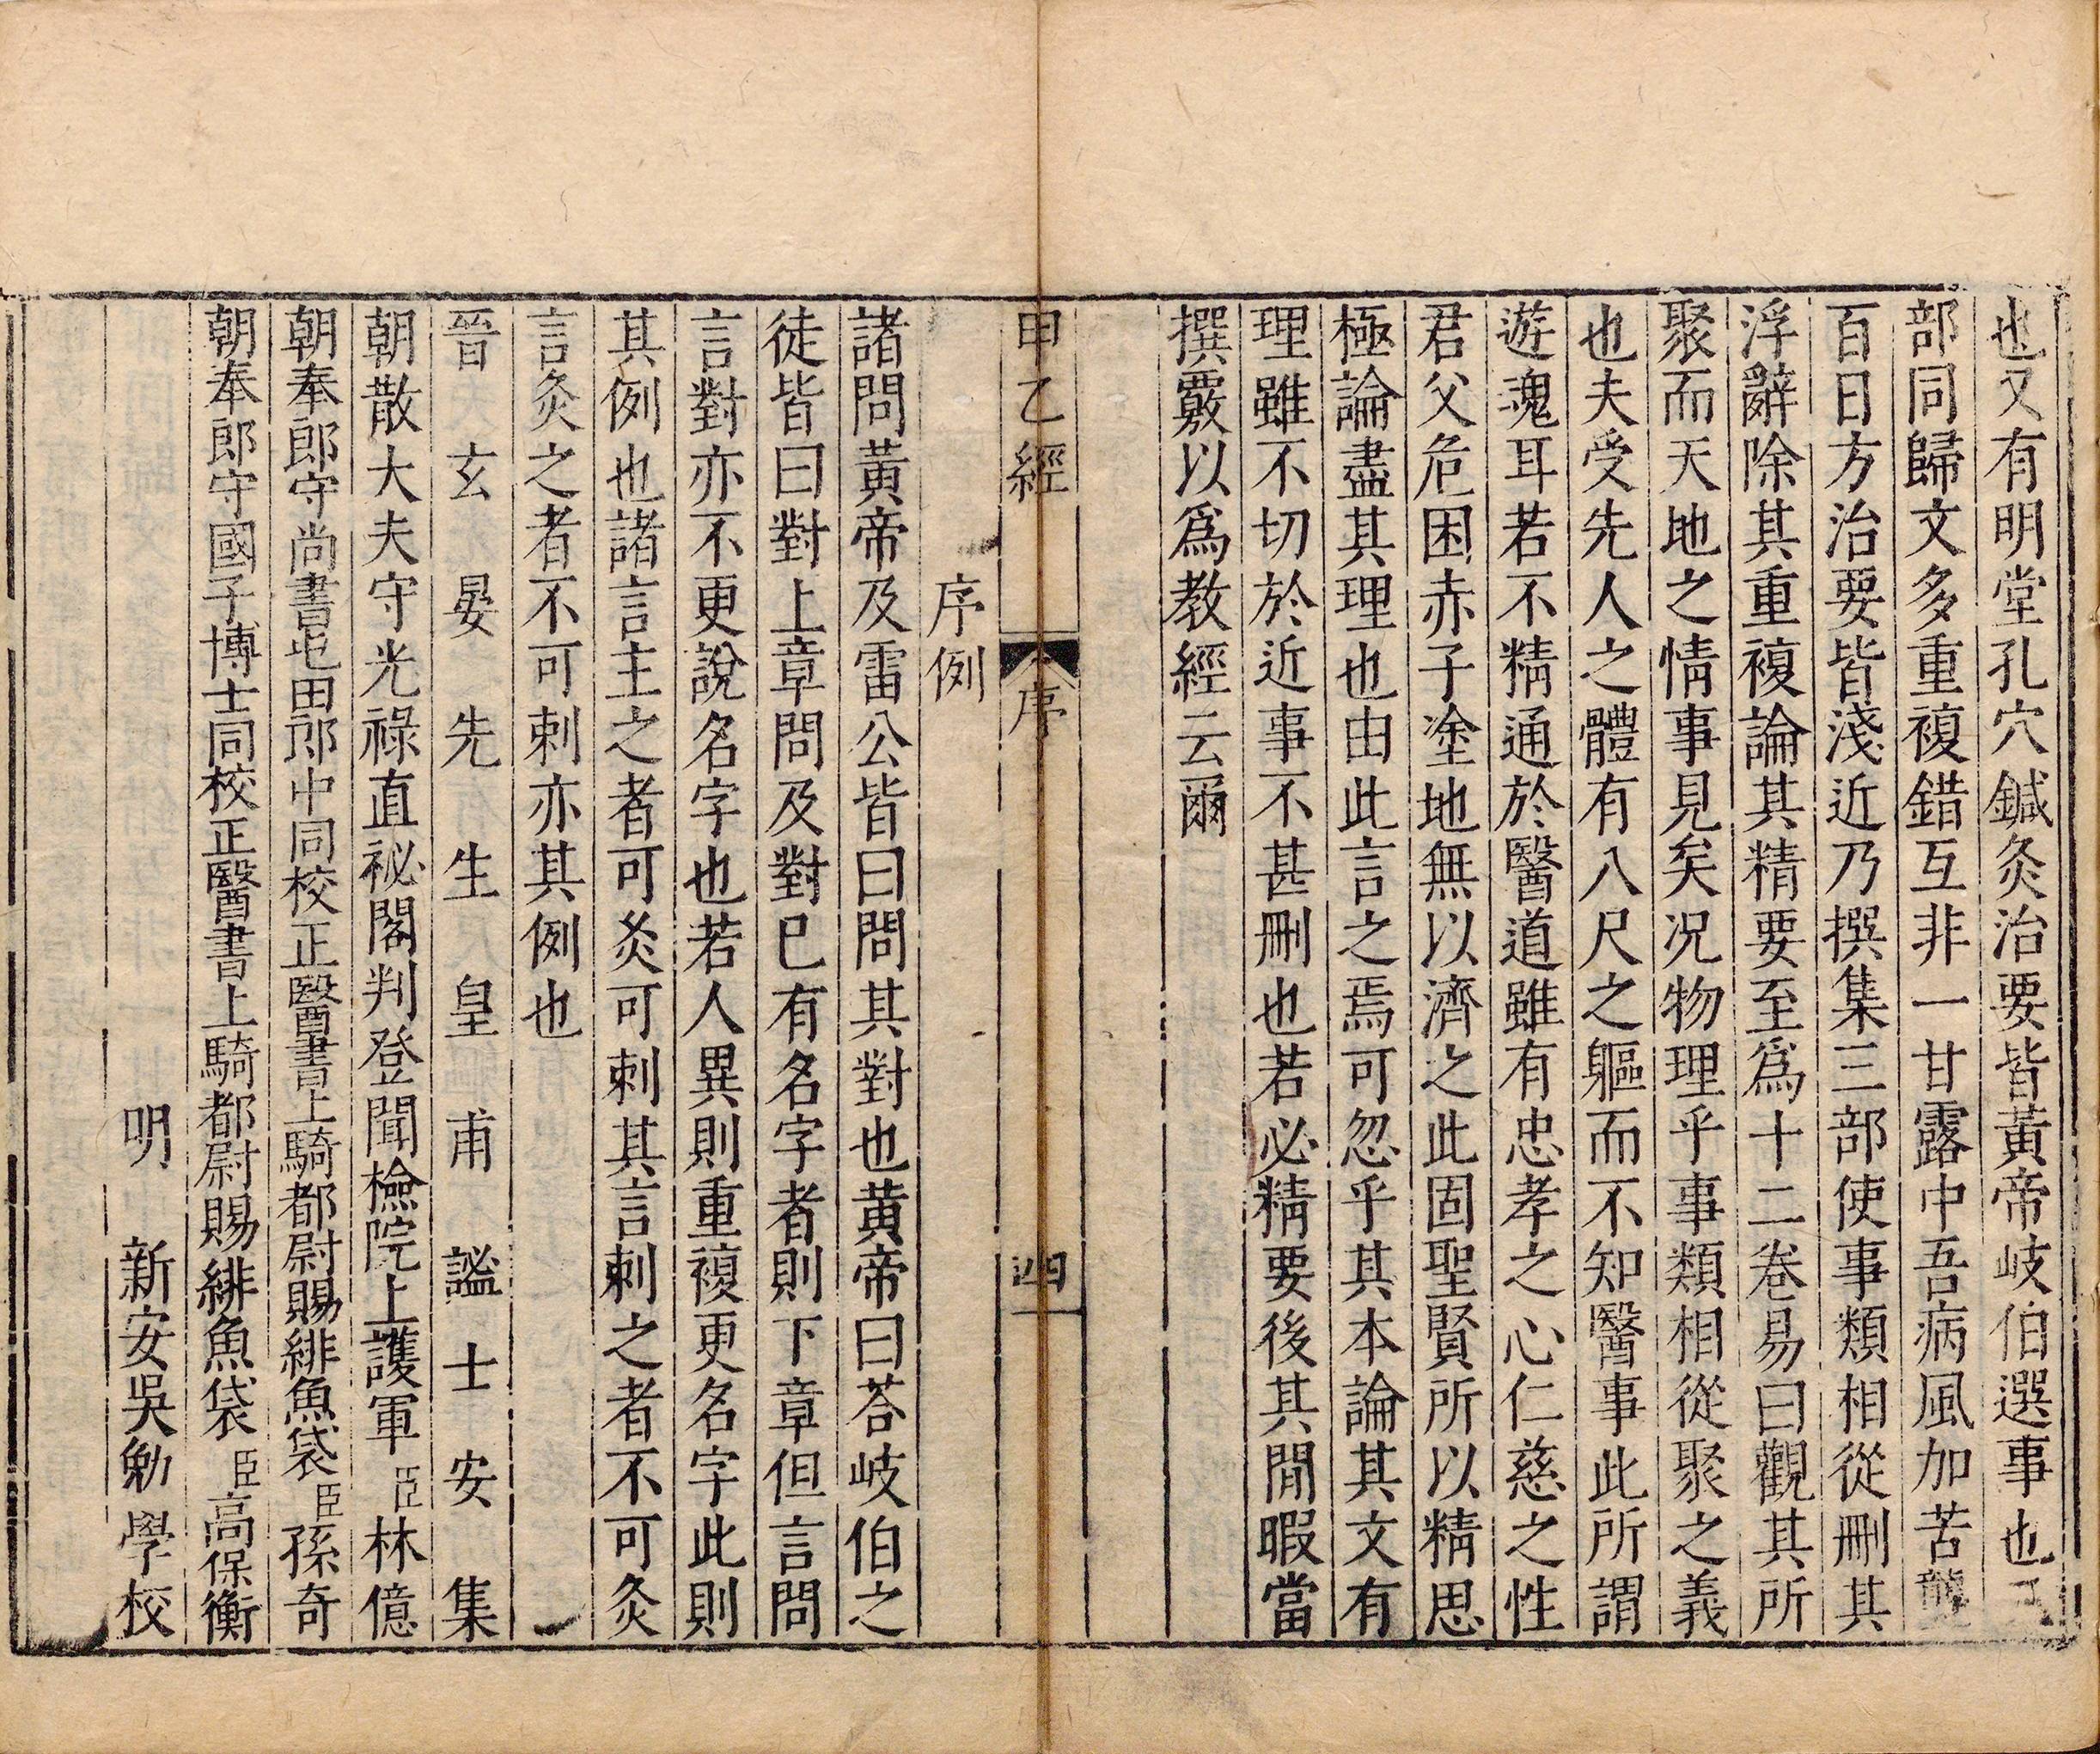 也又有明堂孔穴鍼灸治要皆黃帝岐伯選事也三
部同歸文多重複錯互非一甘露中吾病風加苦聾
百日方治要皆淺近乃撰集三部使事類相從刪其
浮辭除其重複論其精要至爲十二卷易曰觀其所
聚而天地之情事見矣況物理乎事類相從聚之義
也夫受先人之體有八尺之軀而不知醫事此所謂
遊魂耳若不精通於醫道雖有忠孝之心仁慈之性
君父危困赤子塗地無以濟之此固聖賢所以精思
極論盡其理也由此言之焉可忽乎其本論其文有
理雖不切於近事不甚刪也若必精要後其閒暇當
撰覈以爲教經云爾
甲乙經 序 四
序例
諸問黃帝及雷公皆曰問其對也黃帝曰荅岐伯之
徒皆曰對上章問及對巳有名字者則下章但言問
言對亦不更說名字也若人異則重複更名字此則
其例也諸言主之者可灸可刺其言刺之者不可灸
言灸之者不可刺亦其例也
晉玄晏先生皇甫謐士安集
朝散大夫守光祿直祕閣判登聞檢院上護軍臣林億
朝奉郎守尚書屯田郎中同校正醫書上騎都尉賜緋魚袋臣孫奇
朝奉郎守國子博士同校正醫書上騎都尉賜緋魚袋臣高保衡
明新安吳勉學校